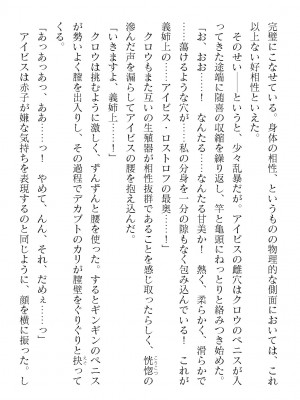 完璧にこなせている。身体の相性、というものの物理的な側面においては、これ
以上ない好相性といえた。
　そのせい――というと、少々乱暴だが。アイビスの雌穴はクロウのペニスが入
ってきた途端に随喜の収縮を繰り返し、竿と亀頭にねっとりと絡みつき始めた。
「お、おお……！　なんたる……なんたる甘美か！　熱く、柔らかく、滑らかで
……蕩けるような穴が……私の分身を一分の隙もなく包み込んでいる！　これが
義姉上の……アイビス・ロストロフの最奥……！」
　クロウもまた互いの生殖器が相性抜群であることを感じ取ったらしく、恍惚の
滲んだ声を漏らしてアイビスの腰を抱え込んだ。
「いきますよ、義姉上……！」
　クロウは挑むように激しく、ずんずんと腰を使った。するとギンギンのペニス
が勢いよく膣を出入りし、その過程でデカブトのカリが膣壁をぐりぐりと抉って
くる。
「あっあっあっ、ああっ……！　やめて、んん、それ、だめぇ……っ」
　アイビスは赤子が嫌な気持ちを表現するのと同じように、顔を横に振った。し